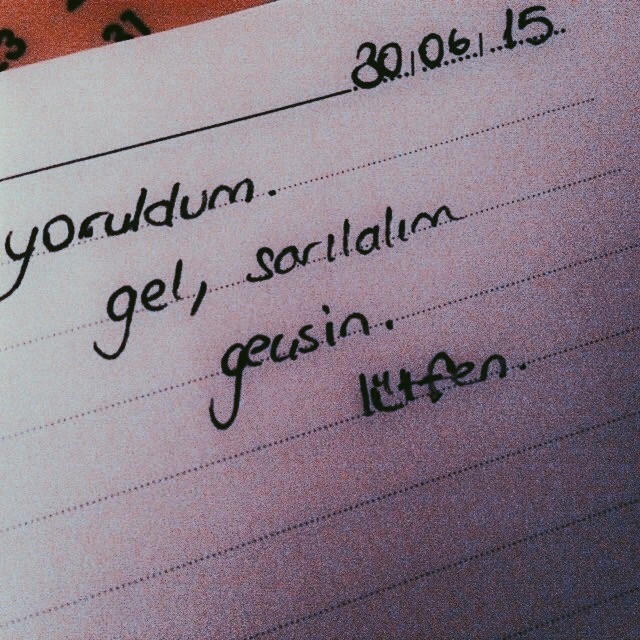 30.06.15
yoruldum.
gel, sarılalım
geçsin.
lütfen.